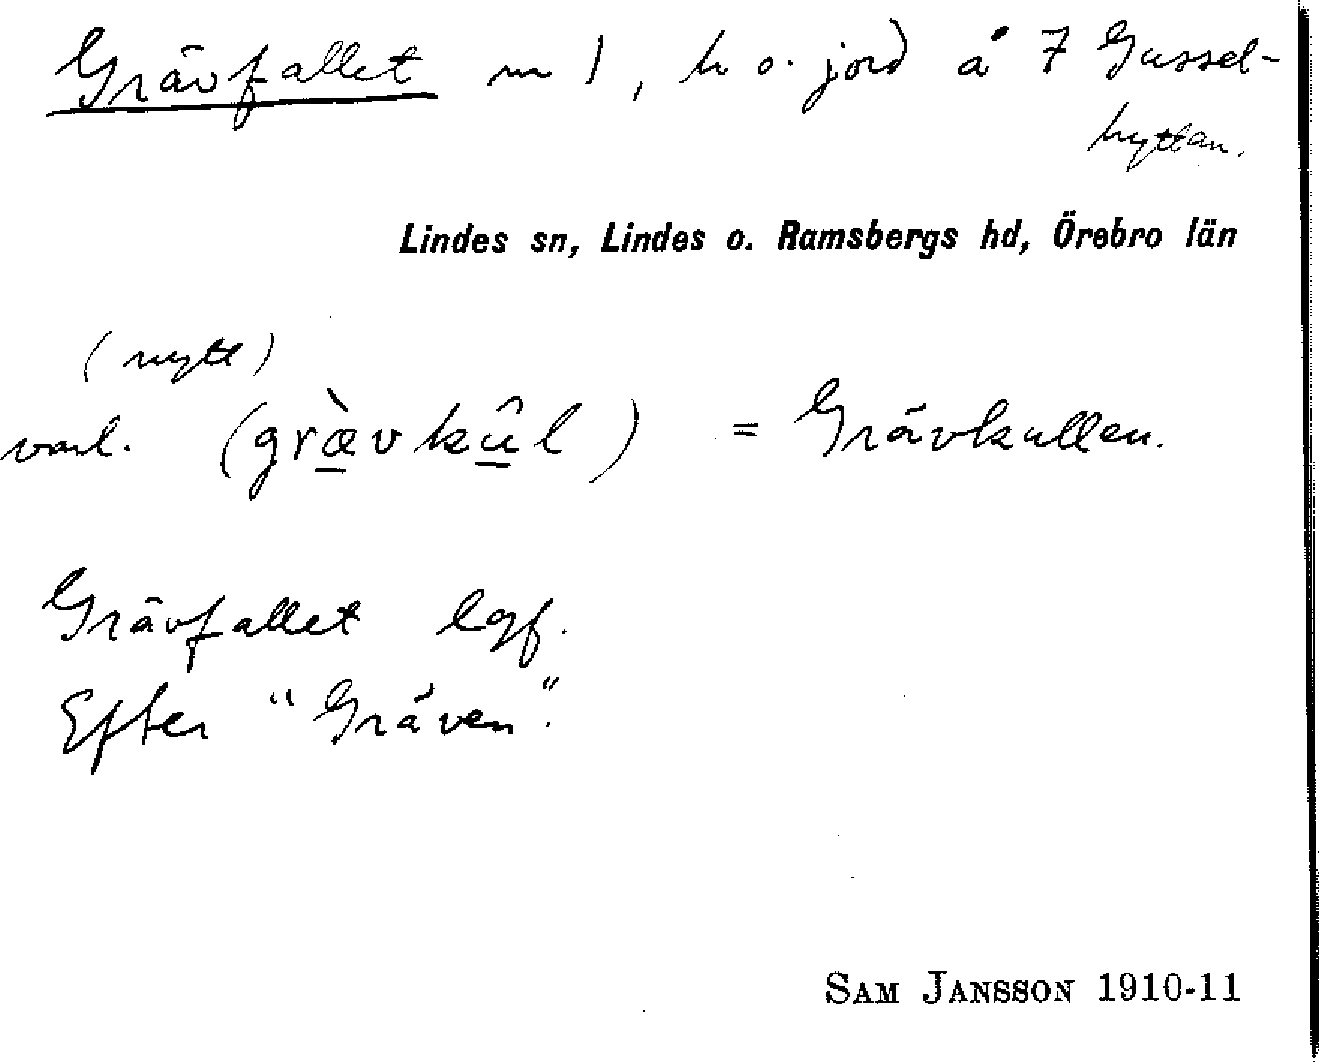 Grävfallet m 1, h o. jord å 7 Gussel-
hyttan.
Lindes sn, Lindes o. Ramsbergs hd, Örebro län
(nytt)
vanl. (græ̀vkûl) = Grävkullen.
Grävfallet lgf.
Efter "Gräven".
SAM JANSSON 1910-11